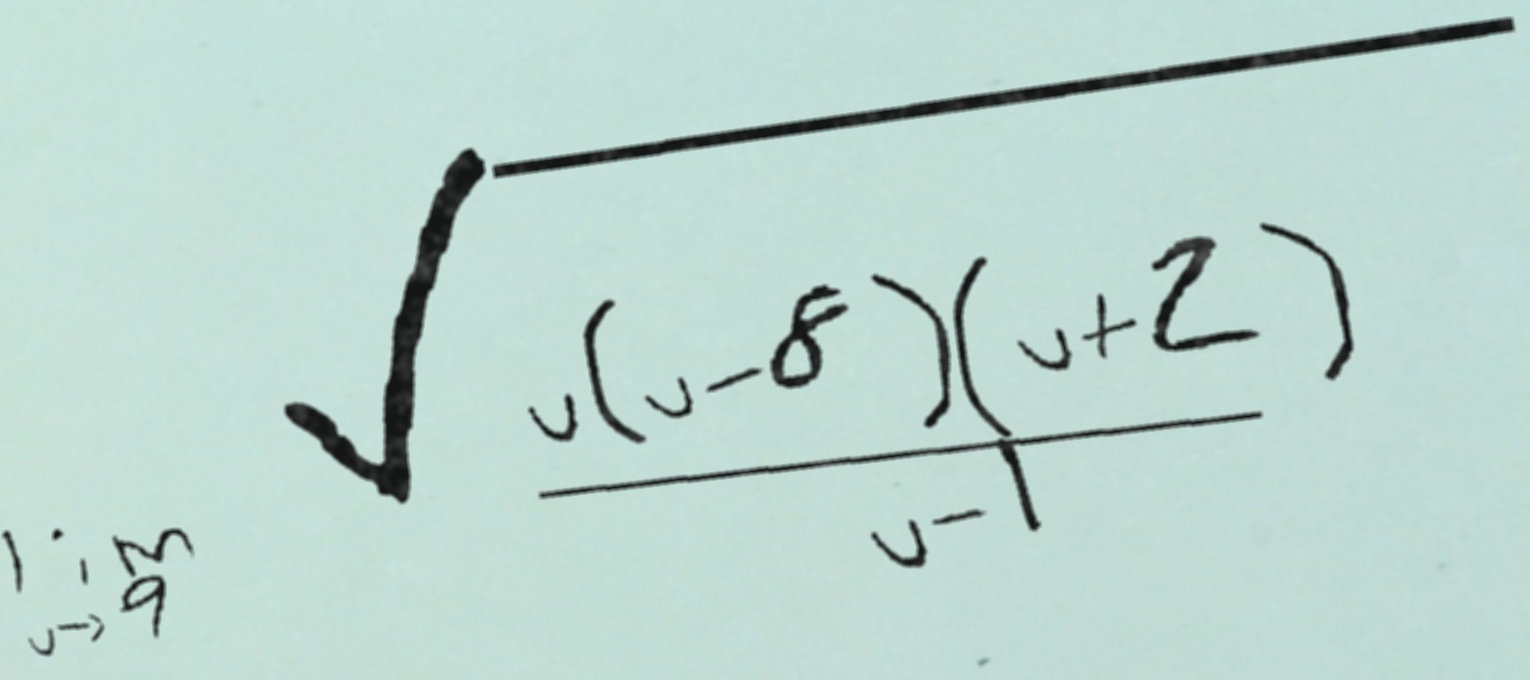 lim v→9 √(v(v-8)(v+2)/(v-1))